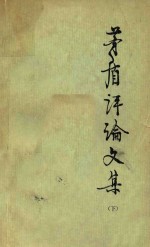 茅盾评论文集
(下)